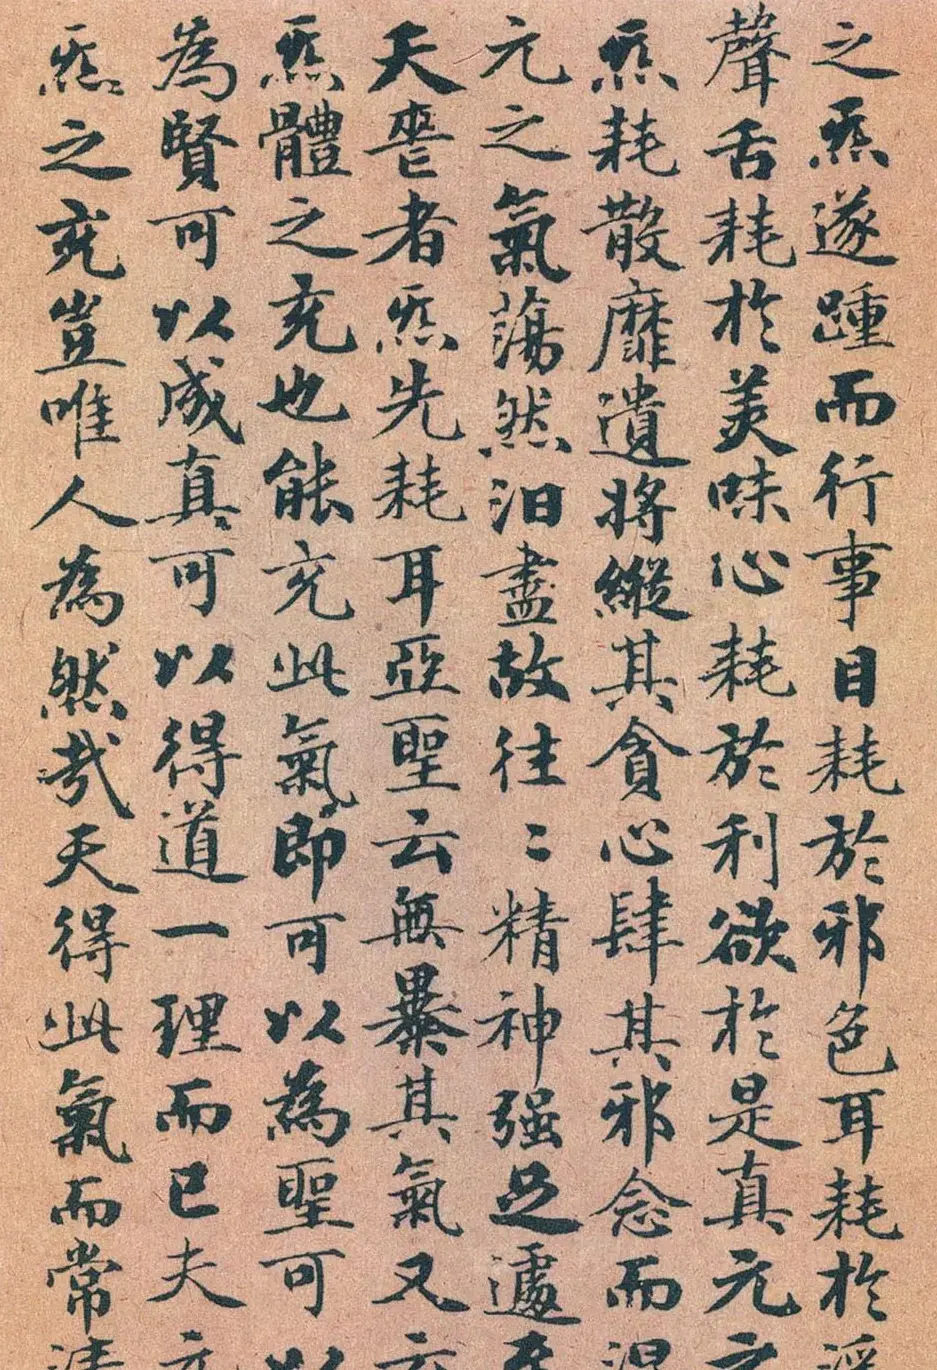 之炁遂踵而行事目耗於邪色耳耗於淫
聲舌耗於美味心耗於利欲於是真元
炁耗散靡遺將縱其貪心肆其邪念而混
元之氣蕩然汩盡故往〻精神强足遽
天喪者炁先耗耳亞聖云無暴其氣又云
炁體之充也能充此氣即可以為聖可以
為賢可以成真可以得道一理而已夫元
炁之充豈唯人為然哉天得此氣而常清